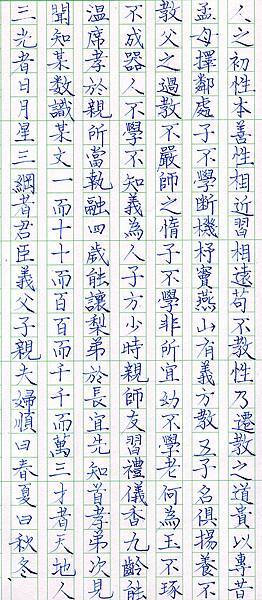 人之初性本善性相近習相遠苟不教性乃遷教之道貴以專昔
孟母擇鄰處子不學斷機杼竇燕山有義方教五子名俱揚養不
教父之過教不嚴師之惰子不學非所宜幼不學老何為玉不琢
不成器人不學不知義為人子方少時親師友習禮儀香九齡能
溫席孝於親所當執融四歲能讓梨弟於長宜先知首孝弟次見
聞知某数識某文一而十十而百百而千千而萬三才者天地人
三光者日月星三綱者君臣義父子親夫婦順曰春夏曰秋冬